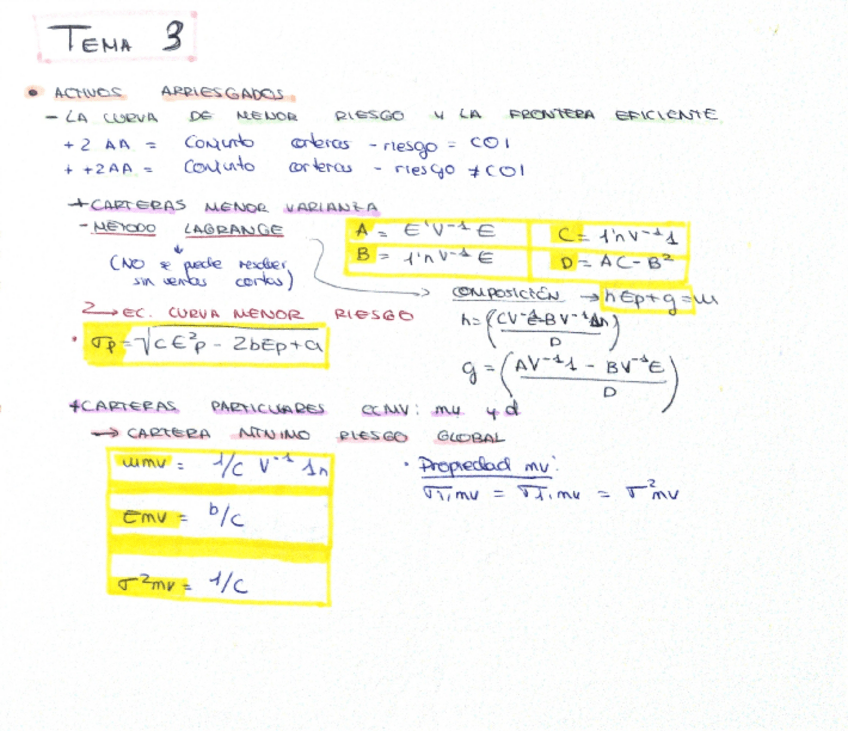 TEMA 3
• ACTIVOS ARRIESGADOS
- LA CURVA DE MENOR RIESGO Y LA FRONTERA EFICIENTE
+ 2 AA = Conjunto carteras - riesgo = COI
+ +2AA = Conjunto carteras - riesgo ≠ COI
+ CARTERAS MENOR VARIANZA
- MÉTODO LAGRANGE
(NO se puede resolver sin ventas cortas)
A = E'V⁻¹E
C = 1'n V⁻¹1
B = 1'n V⁻¹E
D = AC - B²
COMPOSICIÓN → hEp + g = w
h = (CV⁻¹E - BV⁻¹1n / D)
g = (AV⁻¹1 - BV⁻¹E / D)
2 → EC. CURVA MENOR RIESGO
• σp = √CE²p - 2bEp + a
+ CARTERAS PARTICULARES CCMV: mv y d
→ CARTERA MÍNIMO RIESGO GLOBAL
wmv = 1/c V⁻¹ 1n
Emv = b/c
σ²mv = 1/c
• Propiedad mv:
σi,mv = σj,mv = σ²mv